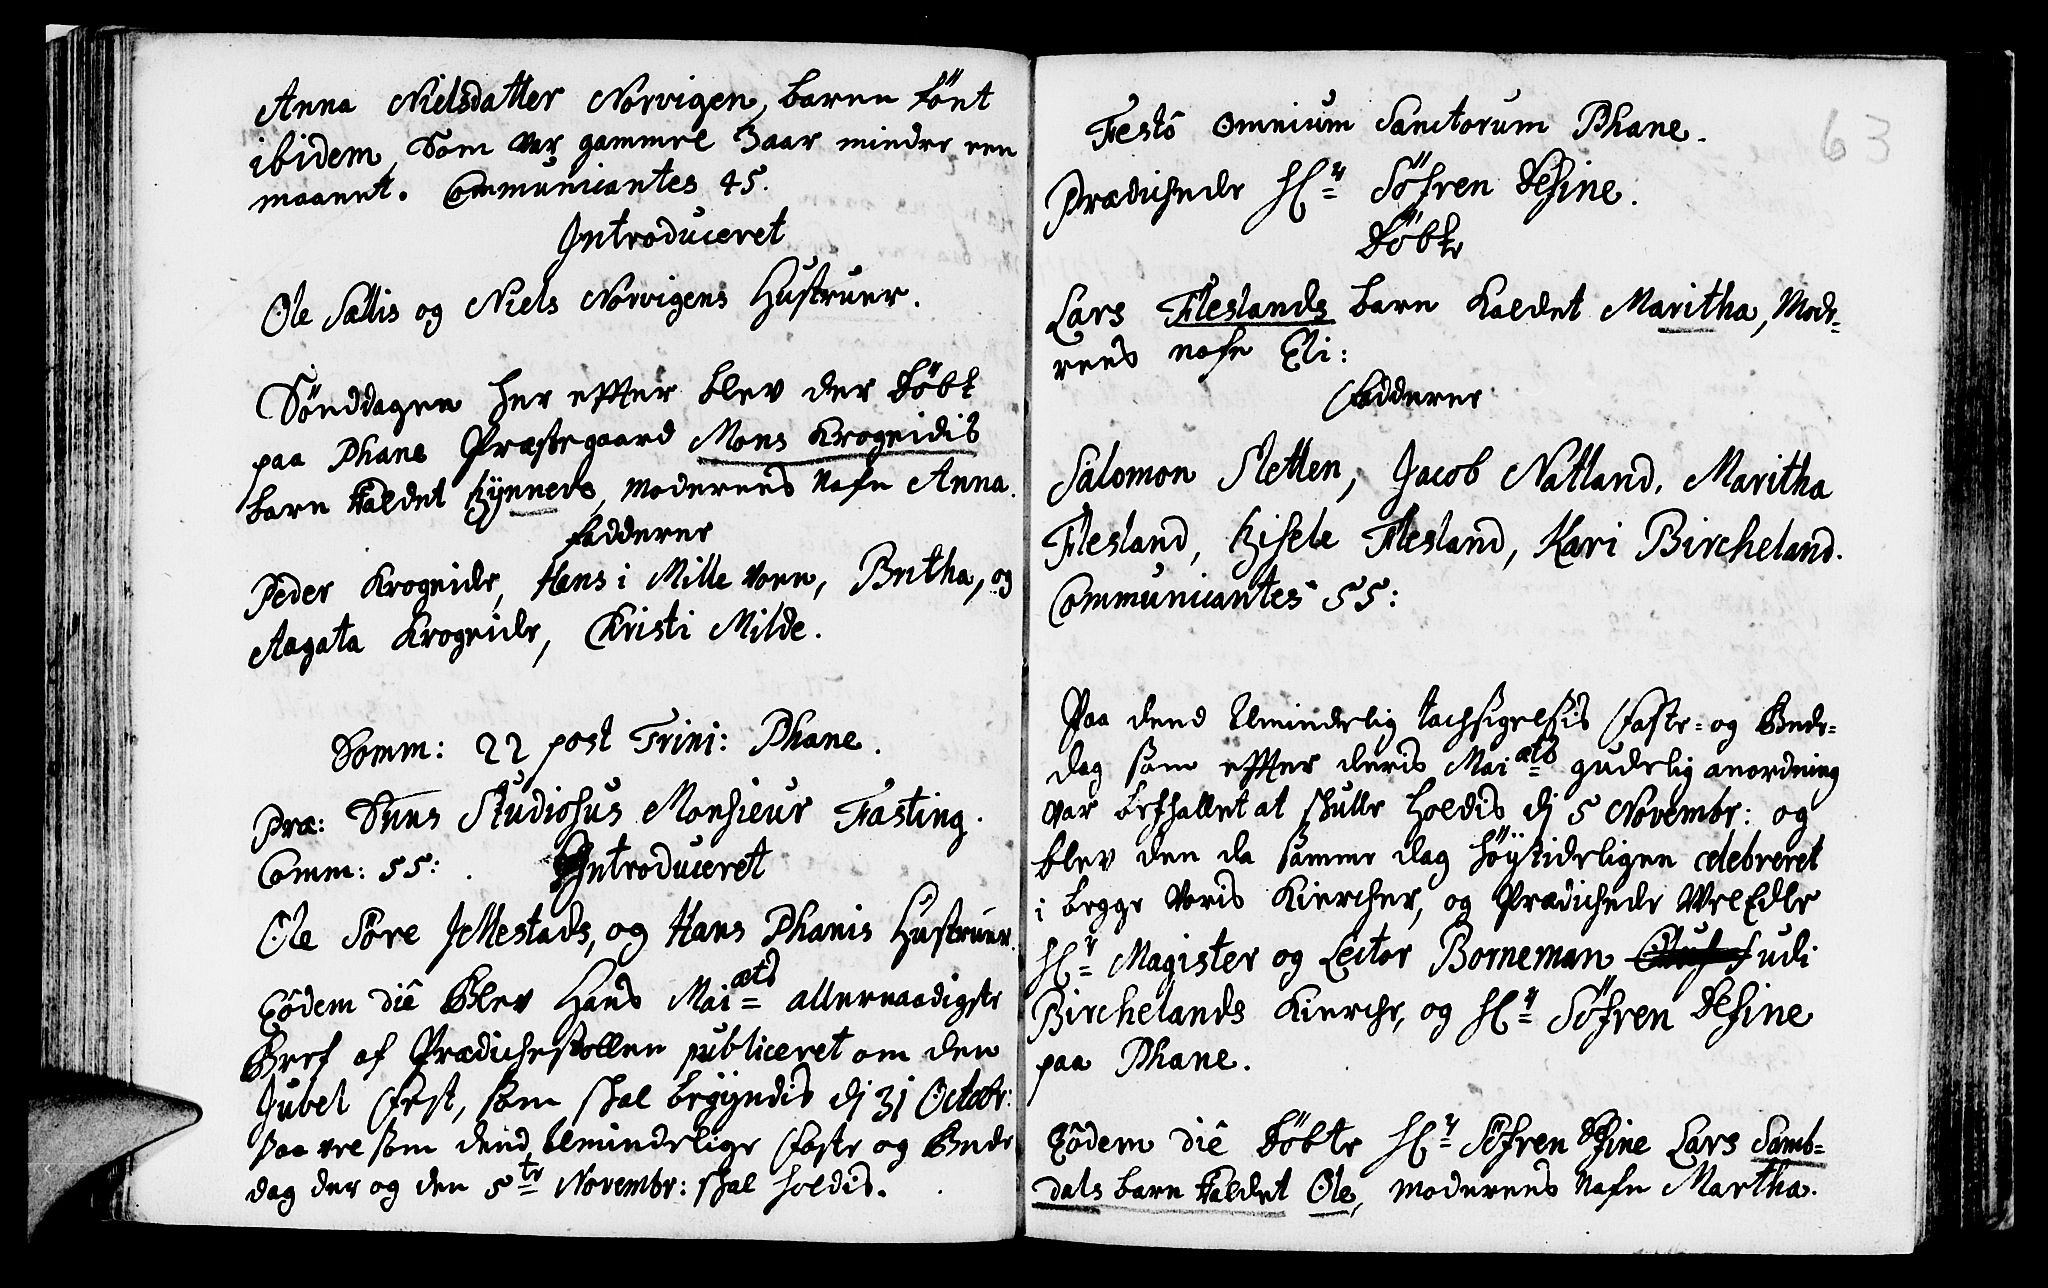 Anna Nielsdatter Norvigen, baren fönt
ibidem, Som var gammel 3 aar mindre een
maanet. Communicantes 45.
Introduceret
Ole Sællis og Niels Norvigens Hustruer.
Sönddagen her effter blev der Döbt
paa Phane Præstegaard Mons Krogeidis
barn Kaldet Gÿnneld, Moderens Nafn Anna.
Fadderne
Peder Krogeide, Hans i Mille Voen, Britha, og
Aagata Krogeide, Christi Milde.
Domm: 22 post Trini: Phane.
Præ: Dnus Studiosus Monsieur Fasting.
Comm: 55: Introduceret
Ole Söre Jllestads, og Hans Phanis Hustruer.
Eôdem diê Blev Hans Mai æts allernaadigste
Bref af Prædichestollen publiceret om den
Jubel Fest, som skal begÿndis dj 31 Octobr:
saa vel som dend Almindelige Faste og Bede
dag der og den 5te Novembr: skal holdis.
63
Festô Omnium Sanctorum Phane.
Prædichede Hr Söfren Define.
Döbte
Lars Fleslands barn Kaldet Maritha, Mode-
rens nafn Eli:
Fadderne
Salomon Sletten, Jacob Natland, Maritha
Flesland, Gisele Flesland, Kari Bircheland.
Communicantes 55:
Paa dend Almindelig tachsigelsis Faste- og Bede-
dag som effter deris Mai æts gudelig anordning
var befhallet at skulle holdis dj 5 Novembr: og
blev den da samme dag höÿtideligen celebreret
i begge Voris Kiercher, og Prædichede WelEdle
Hr Magister og Lector Borneman udi
Birchelands Kierche, og Hr Söfren Define
paa Phane.
Eôdem diê Döbte Hr Söfren Define Lars Samb-
dals barn Kaldet Ole, Moderens Nafn Martha.